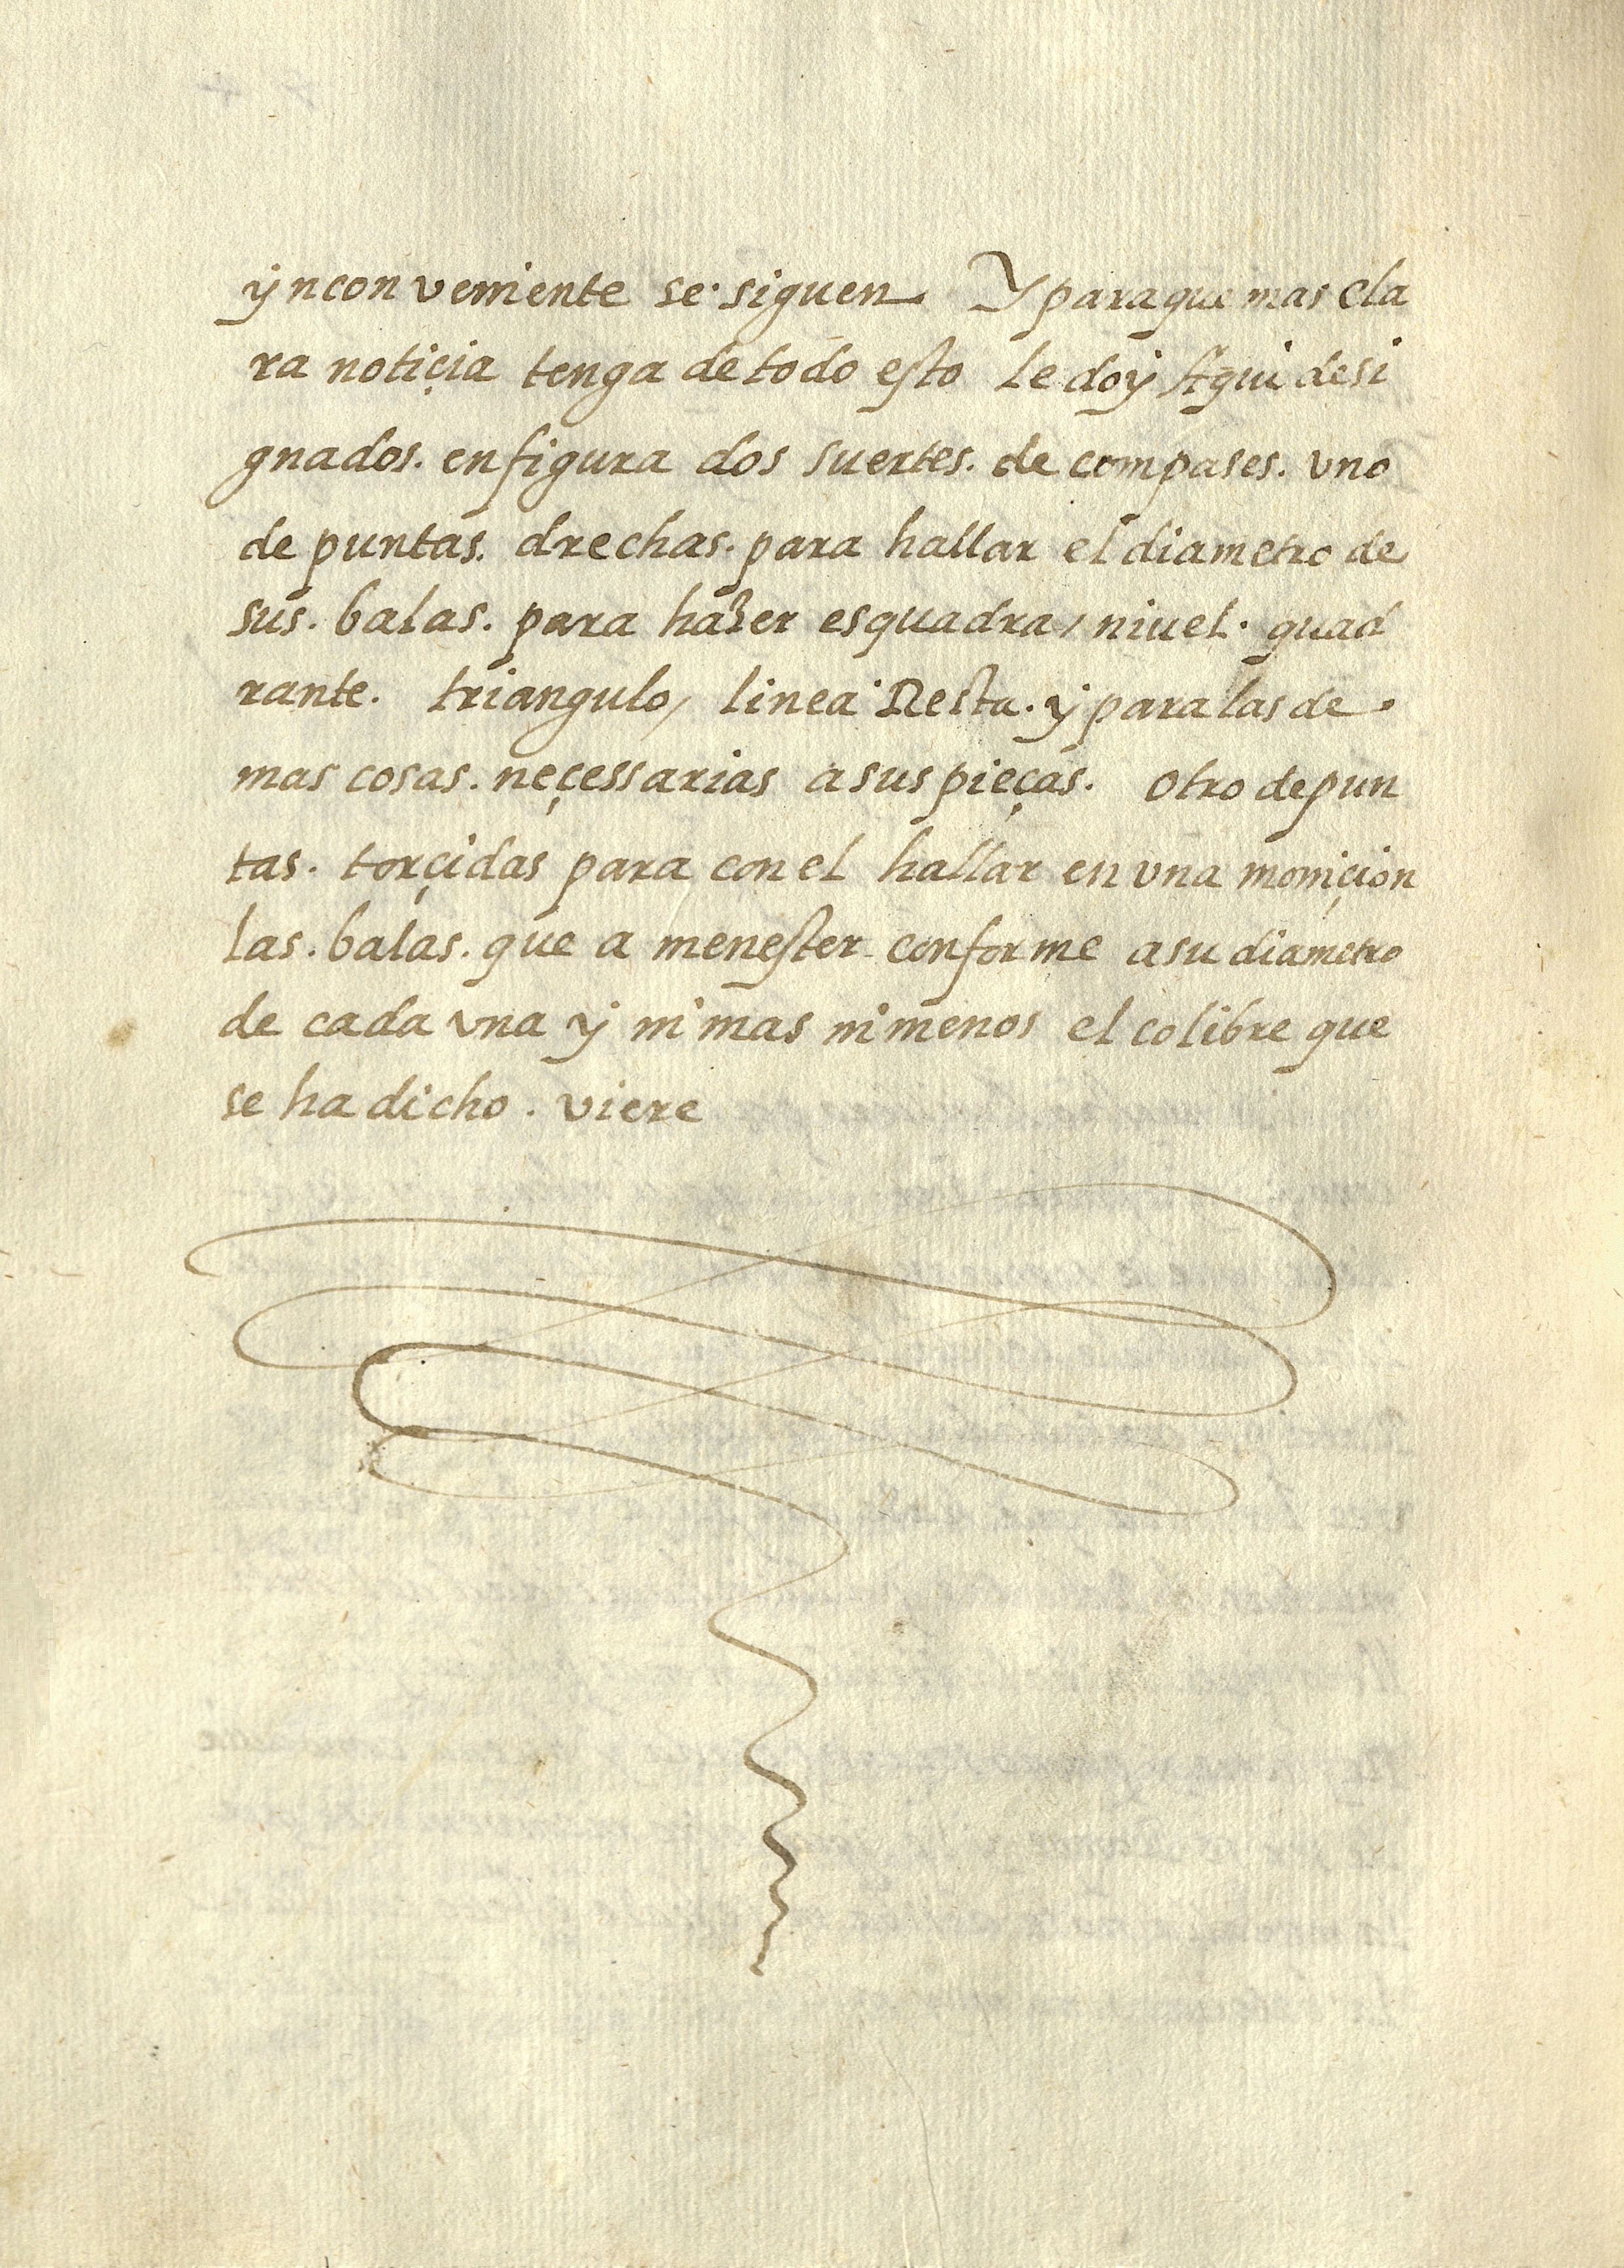 ynconveniente se·siguen. Y paraque mas cla
ra notiçia tenga de todo esto le doy Aqui desi
gnados. en figura dos suertes. de compases. vno
de puntas. drechas. para hallar el diametro de
sus. balas. para hazer esquadra, nivel. quad
rante. triangulo, linea Resta. y para las de.
mas cosas. neçessarias a sus pieças. otro de pun
tas. torçidas para con el hallar en vna moniçion
las. balas. que a menester conforme a su diametro
de cada vna y ni mas ni menos el colibre que
se ha dicho. viere